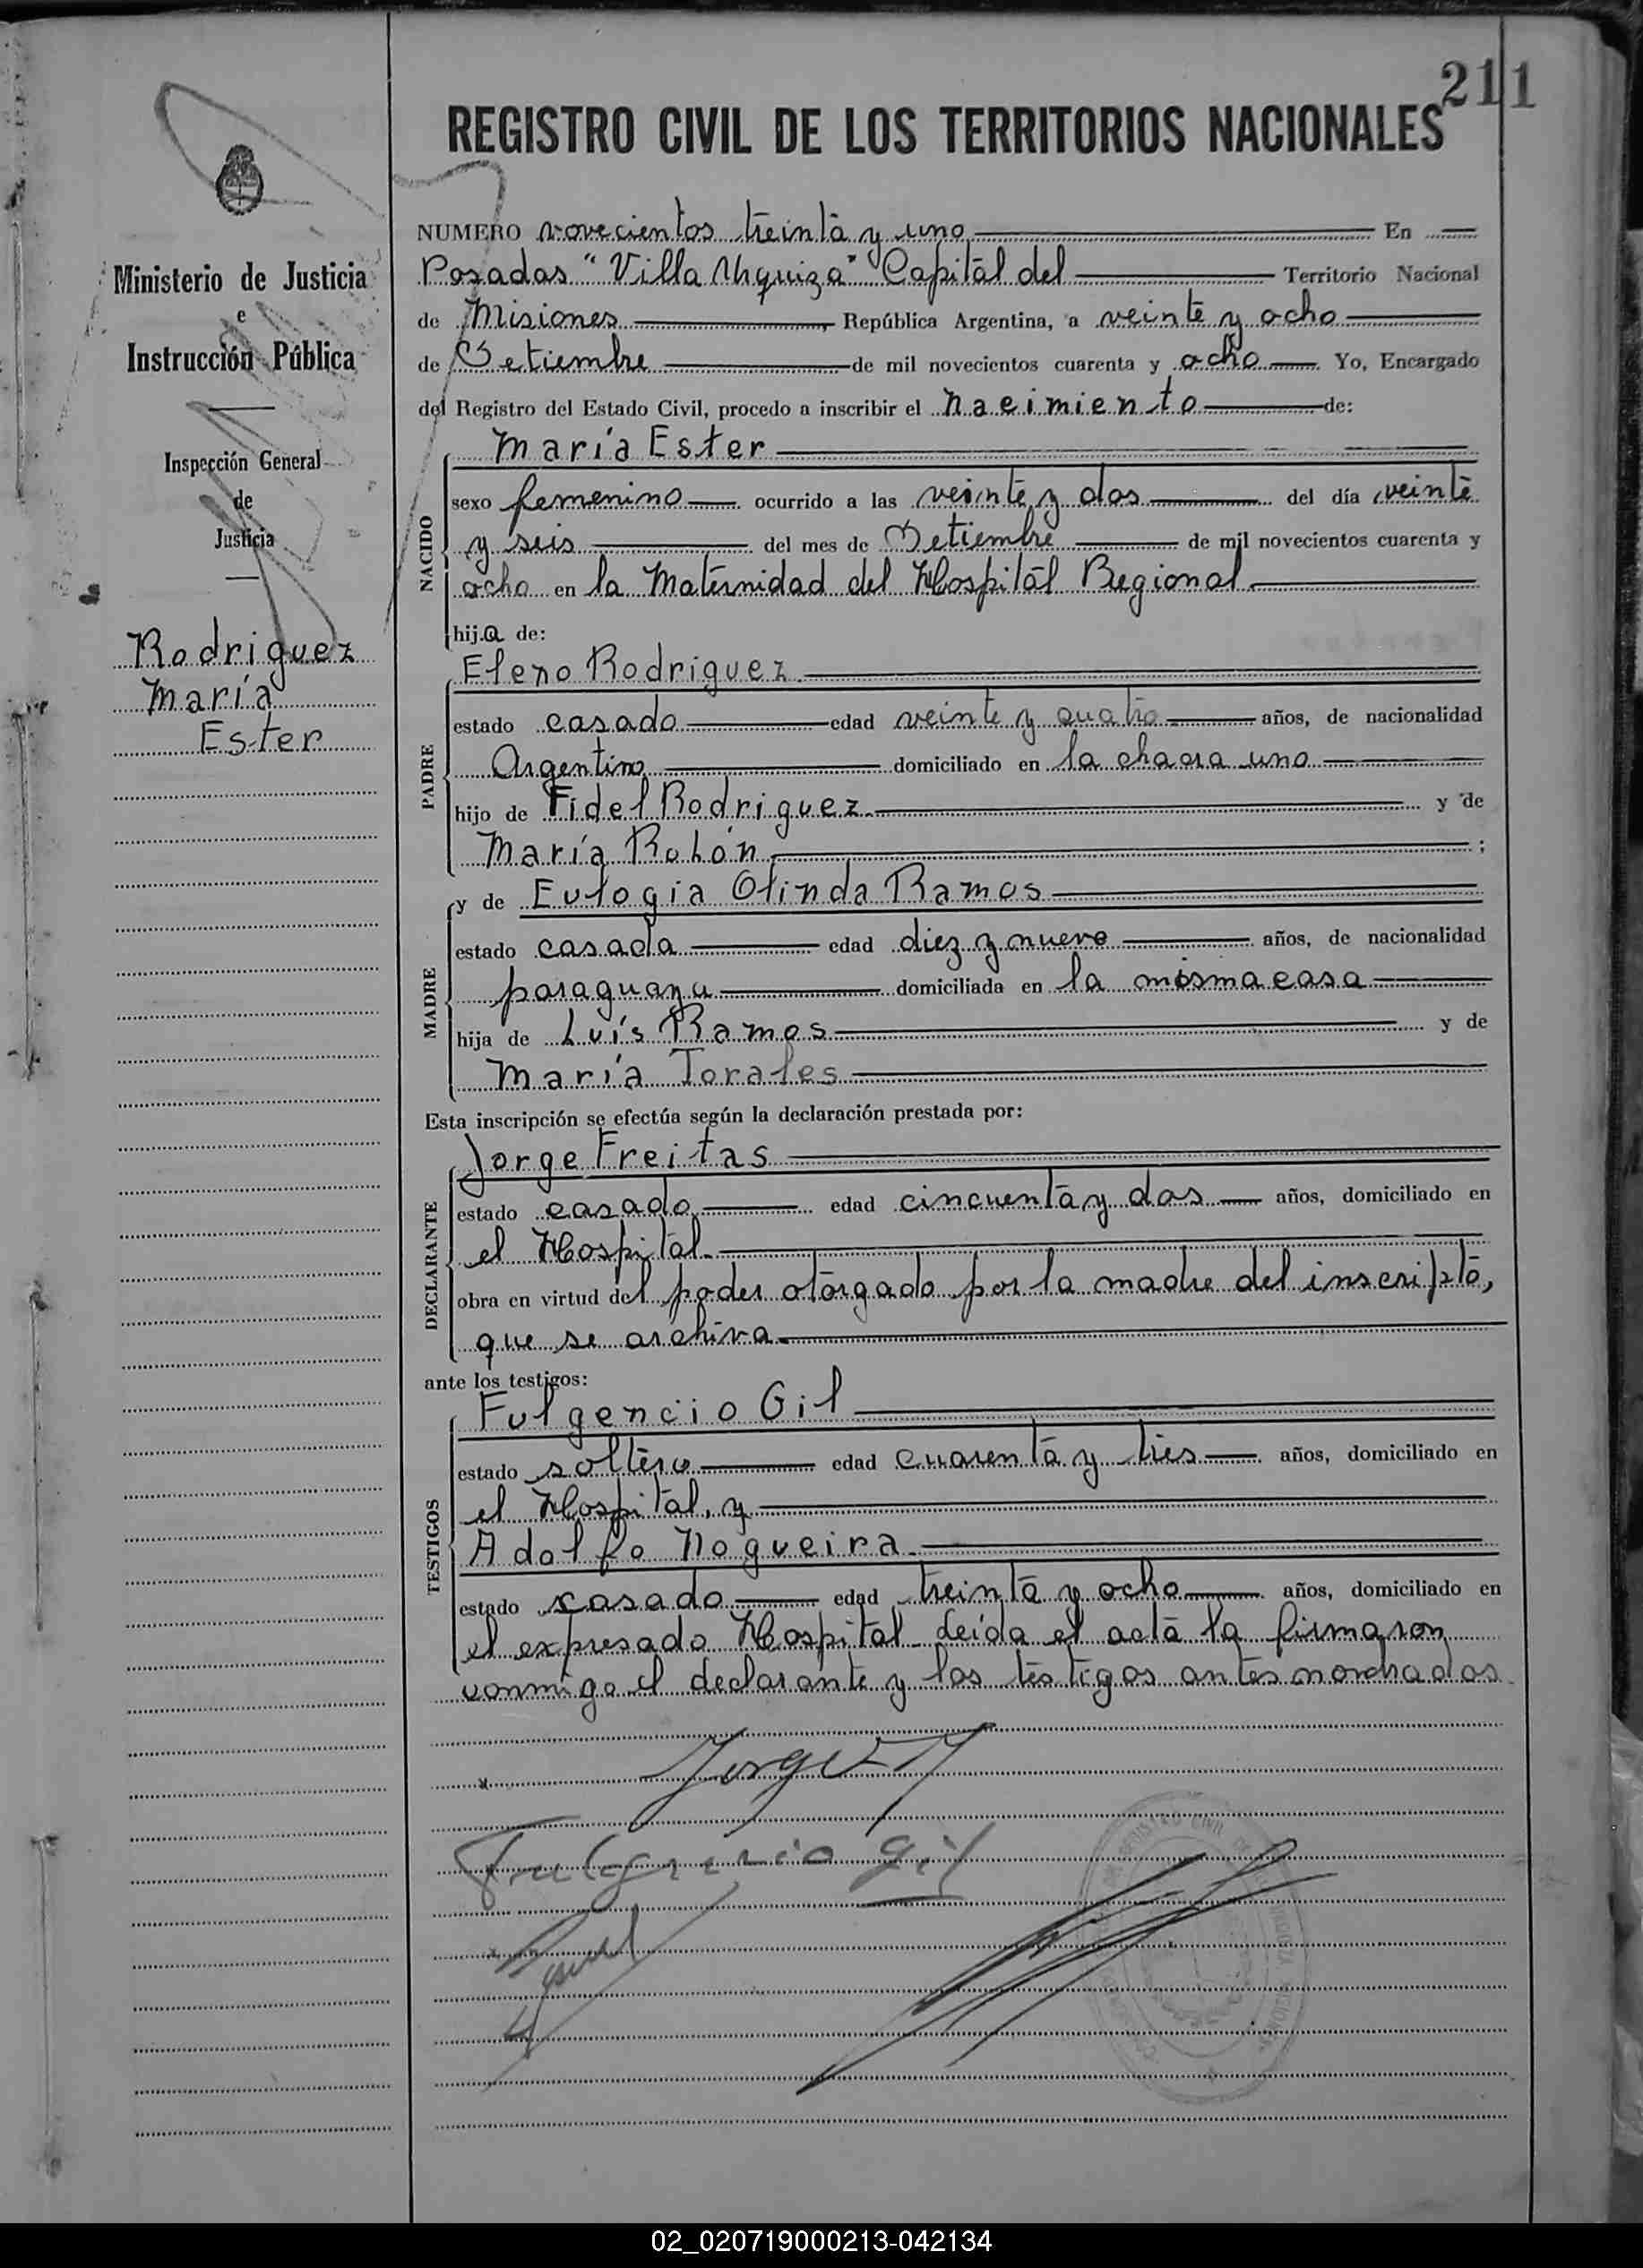 211
REGISTRO CIVIL DE LOS TERRITORIOS NACIONALES
Ministerio de Justicia
e
Instrucción Pública
Inspección General
de
Justicia
Rodriguez
María
Ester
NUMERO novecientos treinta y uno En
Posadas "Villa Urquiza" Capital del Territorio Nacional
de Misiones, República Argentina, a veinte y ocho
de Setiembre de mil novecientos cuarenta y ocho Yo, Encargado
del Registro del Estado Civil, procedo a inscribir el nacimiento de:
NACIDO
María Ester
sexo femenino ocurrido a las veinte y dos del día veinte
y seis del mes de Setiembre de mil novecientos cuarenta y
ocho en la Maternidad del Hospital Regional
hija de:
PADRE
Eleno Rodriguez
estado casado edad veinte y cuatro años, de nacionalidad
Argentino domiciliado en la chacra uno
hijo de Fidel Rodriguez y de
María Rolón ;
MADRE
y de Eulogia Olinda Ramos
estado casada edad diez y nueve años, de nacionalidad
paraguaya domiciliada en la misma casa
hija de Luís Ramos y de
María Torales
Esta inscripción se efectúa según la declaración prestada por:
DECLARANTE
Jorge Freitas
estado casado edad cincuenta y dos años, domiciliado en
el Hospital
obra en virtud del poder otorgado por la madre del inscripto,
que se archiva
ante los testigos:
TESTIGOS
Fulgencio Gil
estado soltero edad cuarenta y tres años, domiciliado en
el Hospital, y
Adolfo Nogueira
estado casado edad treinta y ocho años, domiciliado en
el expresado Hospital Leída el acta la firmaron
conmigo el declarante y los testigos antes nombrados
Jorge
Fulgencio Gil
REGISTRO CIVIL DE
02_020719000213-042134